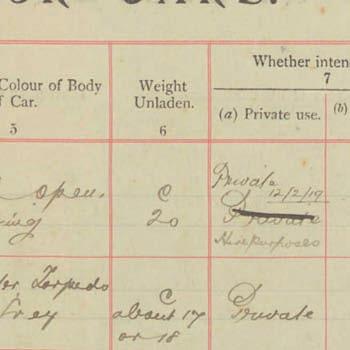 Colour of Body
of Car.
5
Weight
Unladen.
6
Whether inten
7
(a) Private use.
(b)
open.
C
20
Private
12/2/19
Private
Hire purposes
Torpedo
Grey
C
about 17
or 18
Private